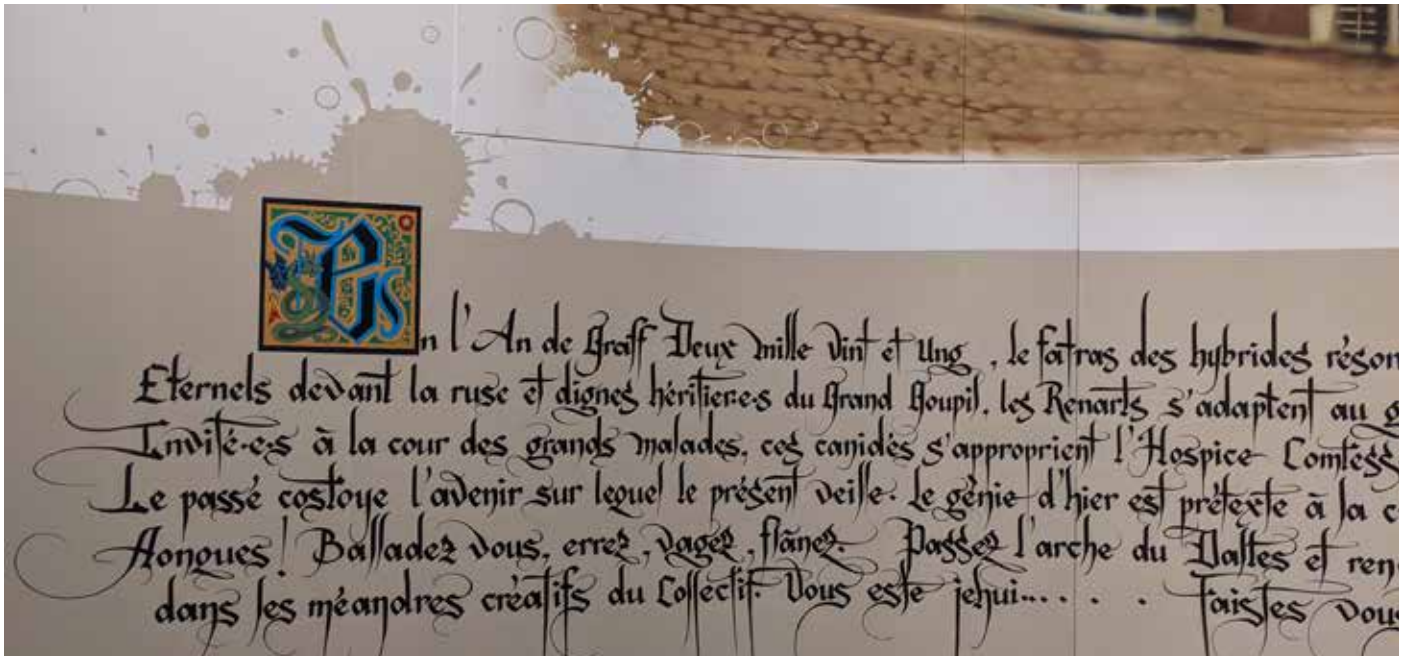 En l'An de Graff Deux mille Vint et Ung, le fatras des hybrides réson
Eternels devant la ruse et dignes héritier·e·s du Grand Goupil, les Renarts s'adaptent au g
Invité·e·s à la cour des grands malades, ces canidés s'approprient l'Hospice Comtess
Le passé costoye l'avenir sur lequel le présent veille. Le génie d'hier est prétexte à la c
Aongues! Balladez vous, errez, vagez, flânez. Passez l'arche du Daltes et ren
dans les méandres créatifs du Collectif. Vous este jehui..... . . Faistes vous